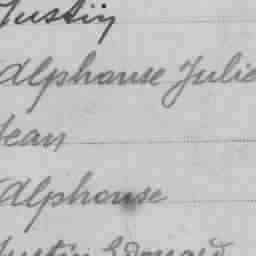 Justin
Alphonse Julie
Jean
Alphonse
Justin Edouard